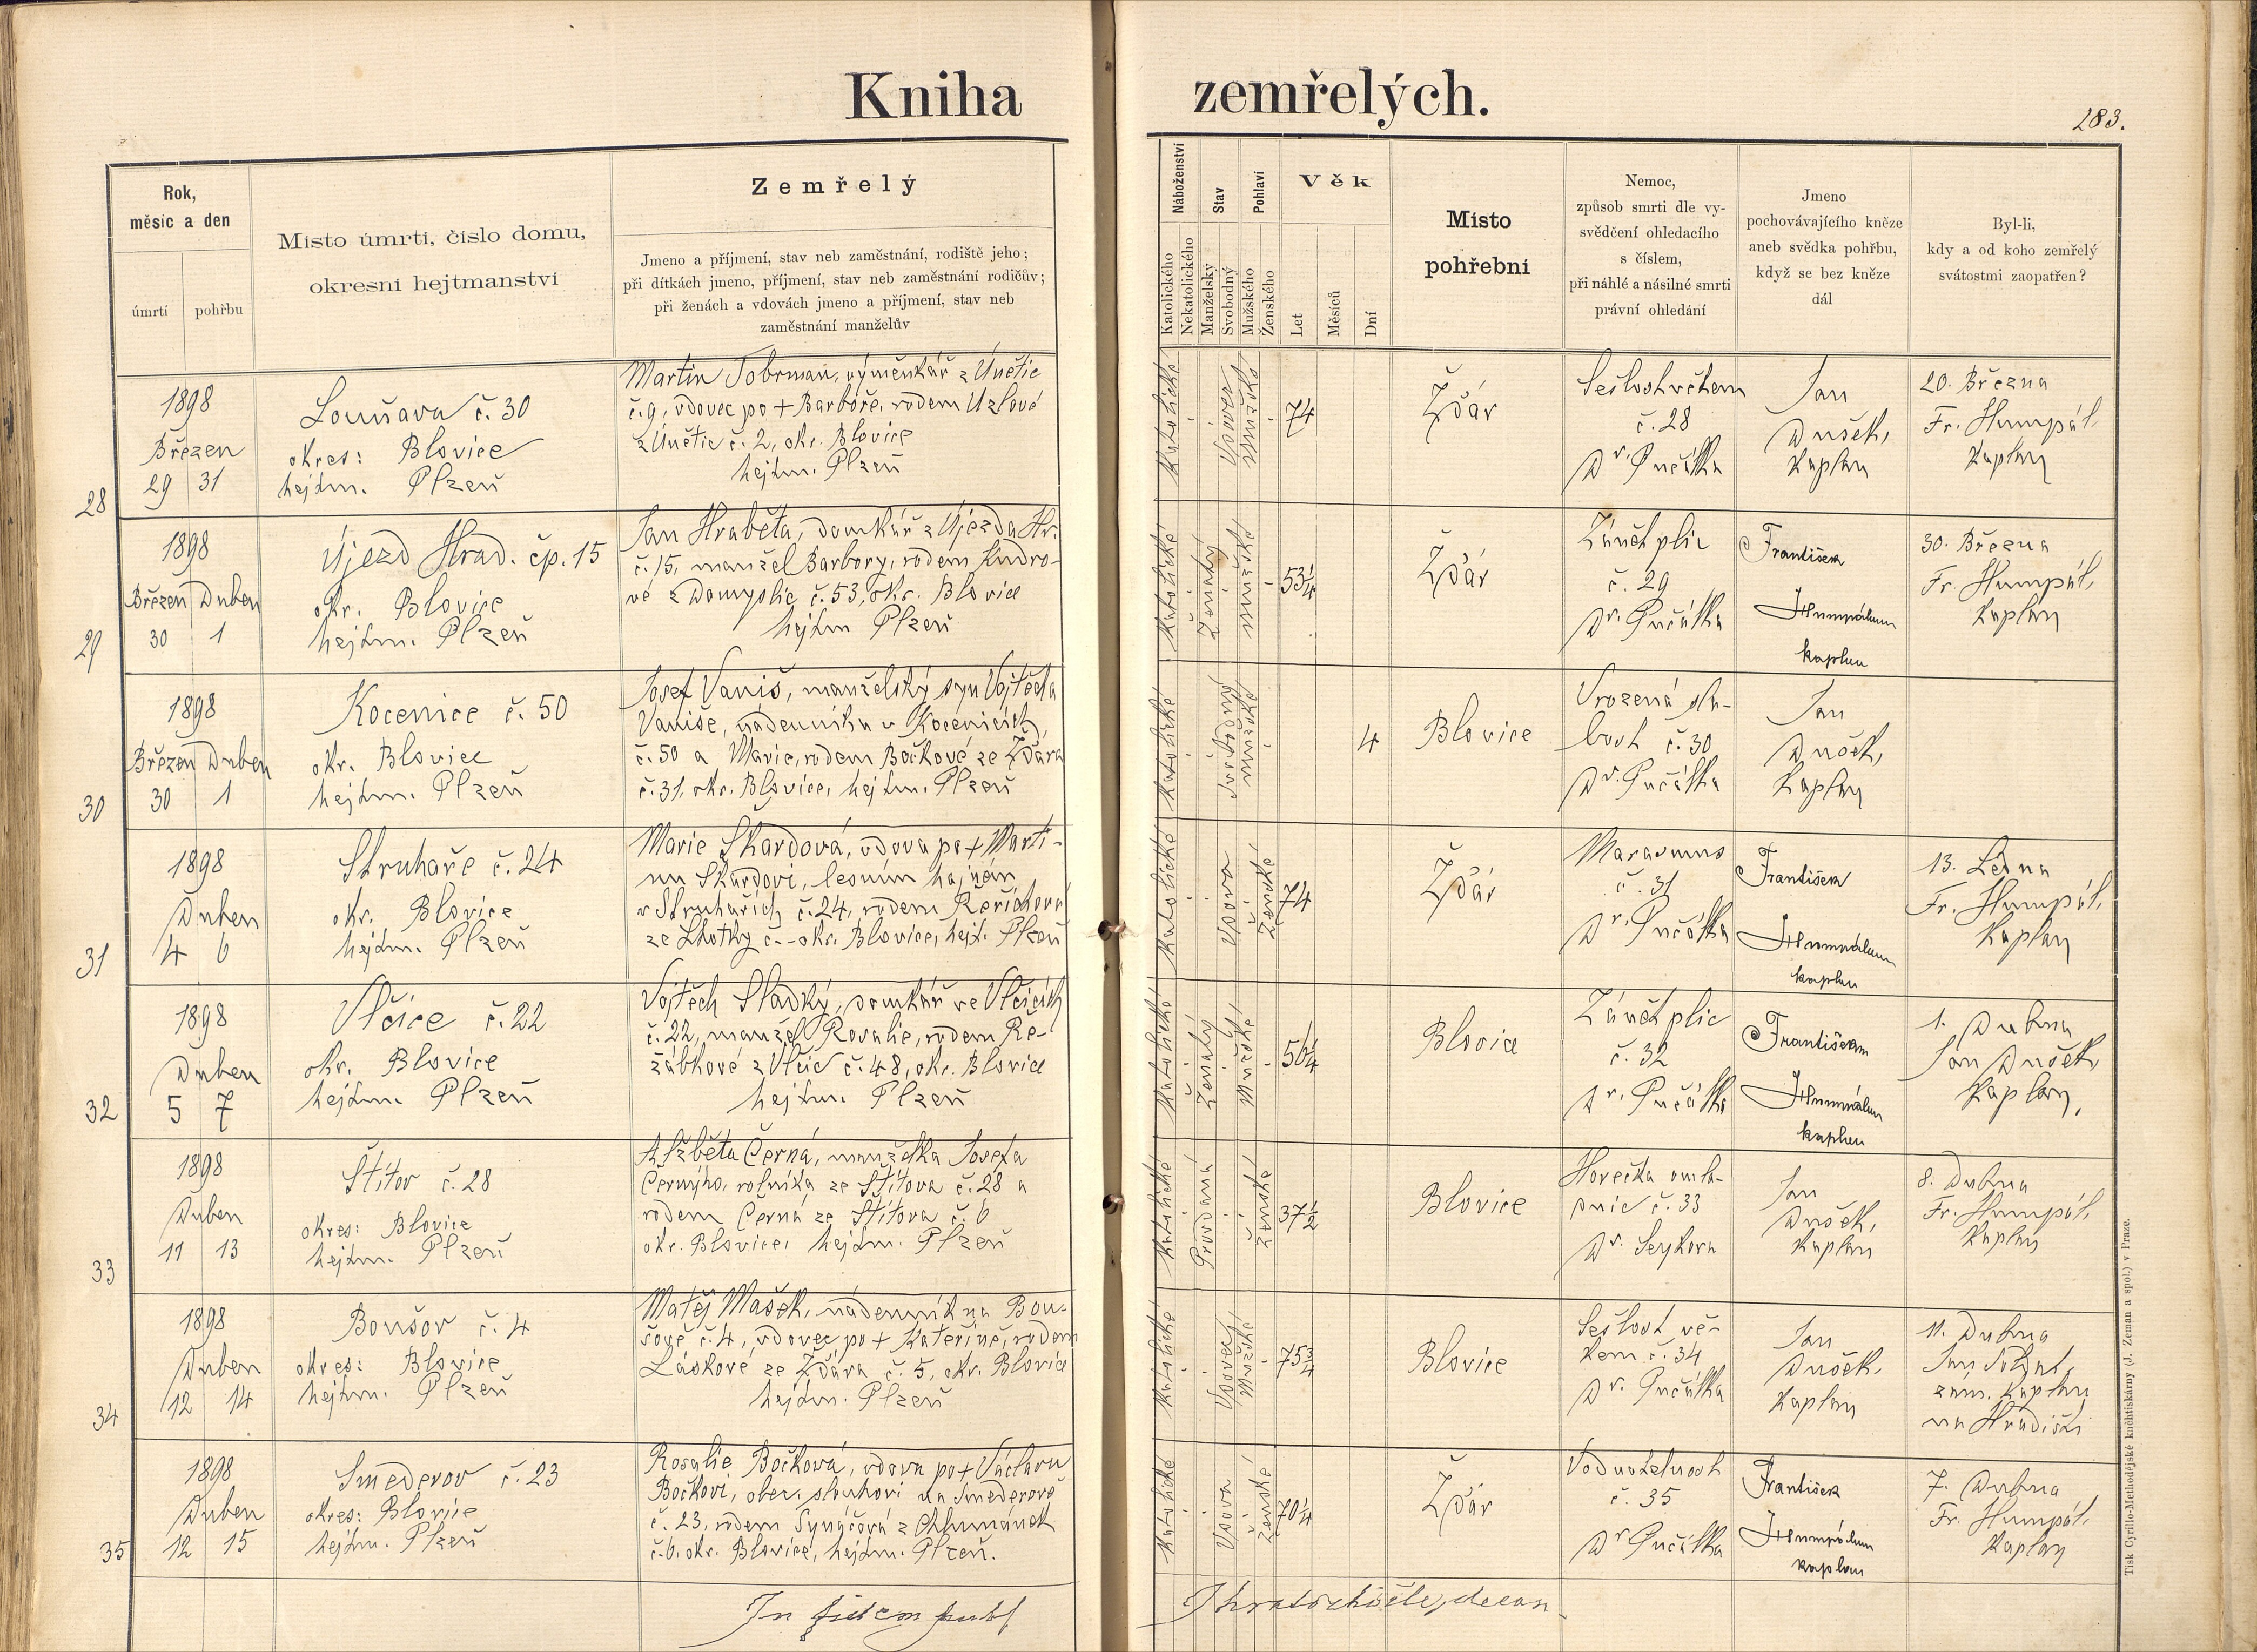 Kniha zemřelých.
283.
Rok,
měsíc a den
úmrtí
pohřbu
Místo úmrtí, číslo domu,
okresní hejtmanství
Zemřelý
Jmeno a příjmení, stav neb zaměstnání, rodiště jeho;
při dítkách jmeno, příjmení, stav neb zaměstnání rodičův;
při ženách a vdovách jmeno a příjmení, stav neb
zaměstnání manželův
Náboženství
Katolického
Nekatolického
Stav
Manželský
Svobodný
Pohlaví
Mužského
Ženského
Věk
Let
Měsíců
Dní
Místo
pohřební
Nemoc,
způsob smrti dle vy-
svědčení ohledacího
s číslem,
při náhlé a násilné smrti
právní ohledání
Jmeno
pochovávajícího kněze
aneb svědka pohřbu,
když se bez kněze
dál
Byl-li,
kdy a od koho zemřelý
svátostmi zaopatřen?
28
1898
Březen
29 31
Louňava č. 30
okres: Blovice
hejtm. Plzeň
Martin Tobrman, výměnkář z Únětic
č. 9, vdovec po + Barboře, rodem Uzlové
z Únětic č. 2, okr. Blovice
hejtm. Plzeň
Katolické
Vdovec
Mužské
74
Žďár
Sešlost věkem
č. 28
Dr. Pučálka
Jan
Dušek,
Kaplan
20. Března
Fr. Humpál,
Kaplan
29
1898
Březen Duben
30 1
Újezd Hrad. čp. 15
okr. Blovice
hejtm. Plzeň
Jan Hraběta, domkář z Újezda Hr.
č. 15, manžel Barbory, rodem Kudro-
vé z Domyslic č. 53, okr. Blovice
hejtm Plzeň
Katolické
Ženatý
mužské
53 1/4
Žďár
Zánět plic
č. 29
Dr. Pučálka
František
Humpálem
kaplan
30. Března
Fr. Humpál,
Kaplan
30
1898
Březen Duben
30 1
Kocenice č. 50
okr. Blovice
hejtm. Plzeň
Josef Vaniš, manželský syn Vojtěcha
Vaniše, nádenníka v Kocenicích,
č. 50 a Marie, rodem Bočkové ze Žďára
č. 31, okr. Blovice, hejtm. Plzeň
Katolické
Svobodný
mužské
4
Blovice
Vrozená sla-
bost č. 30
Dr. Pučálka
Jan
Dušek,
Kaplan
31
1898
Duben
4 6
Struhaře č. 24
okr. Blovice
hejtm. Plzeň
Marie Skardová, vdova po + Marti-
nu Skardovi, lesním hajném
v Struhařích č. 24, rodem Řeřichová
ze Lhotky č. - okr. Blovice, hejt. Plzeň
Katolické
Vdova
Ženské
74
Žďár
Marasmus
č. 31
Dr. Pučálka
František
Humpálem
kaplan
13. Ledna
Fr. Humpál,
Kaplan
32
1898
Duben
5 7
Vlčice č. 22
okr. Blovice
hejtm. Plzeň
Vojtěch Sladký, domkář ve Vlčicích
č. 22, manžel Rosalie, rodem Ře-
žábkové z Vlčic č. 48, okr. Blovice
hejtm. Plzeň
Katolické
Ženatý
Mužské
56 1/4
Blovice
Zánět plic
č. 32
Dr. Pučálka
Františkem
Humpálem
kaplan
1. Dubna
Jan Dušek,
Kaplan,
33
1898
Duben
11 13
Štítov č. 28
okres: Blovice
hejtm. Plzeň
Alžběta Černá, manželka Josefa
Černýho, rolníka ze Štítova č. 28 a
rodem Černá ze Štítova č. 6
okr. Blovice, hejtm. Plzeň
Katolické
Provdaná
ženské
37 1/2
Blovice
Horečka omla-
dnic č. 33
Dr. Seykora
Jan
Dušek,
Kaplan
8. Dubna
Fr. Humpál,
Kaplan
34
1898
Duben
12 14
Boušov č. 4
okres: Blovice
hejtm. Plzeň
Matěj Mašek, nádenník na Bou-
šově č. 4, vdovec po + Kateřině, rodem
Láskové ze Žďára č. 5, okr. Blovice
hejtm. Plzeň
Katolické
Vdovec
Mužské
75 3/4
Blovice
Sešlost vě-
kem č. 34
Dr. Pučálka
Jan
Dušek,
Kaplan
11. Dubna
Jan
zám. Kaplan
na Hradišti
35
1898
Duben
12 15
Smederov č. 23
okres: Blovice
hejtm. Plzeň
Rosalie Bočková, vdova po + Václavu
Bočkovi, obec. sluhovi na Smederově
č. 23, rodem Synáčová z Chlumánek
č. 6. okr. Blovice, hejtm. Plzeň.
Katolické
Vdova
ženské
70 1/4
Žďár
Vodnatelnost
č. 35
Dr Pučálka
František
Humpálem
kaplan
7. Dubna
Fr. Humpál,
Kaplan
In fidem publ
decan
Tisk Cyrillo-Methodějské knihtiskárny (J. Zeman a spol.) v Praze.